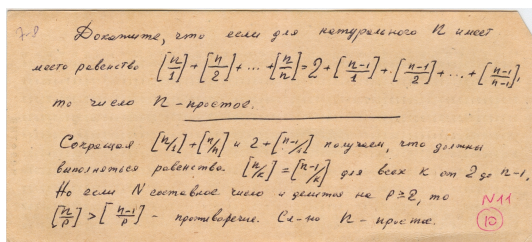 7-8 Докажите, что если для натурального n имеет
место равенство [n/1]+[n/2]+...+[n/n]=2+[n-1/1]+[n-1/2]+...+[n-1/n-1],
то число n - простое.
Сокращая [n/1]+[n/n] и 2+[n-1/1] получаем, что должны
выполняться равенства. [n/k]=[n-1/k] для всех k от 2 до n-1,
Но если N составное число и делится на p≥2, то
[n/p]>[n-1/p] - противоречие. Сл-но n - простое.
N11
10